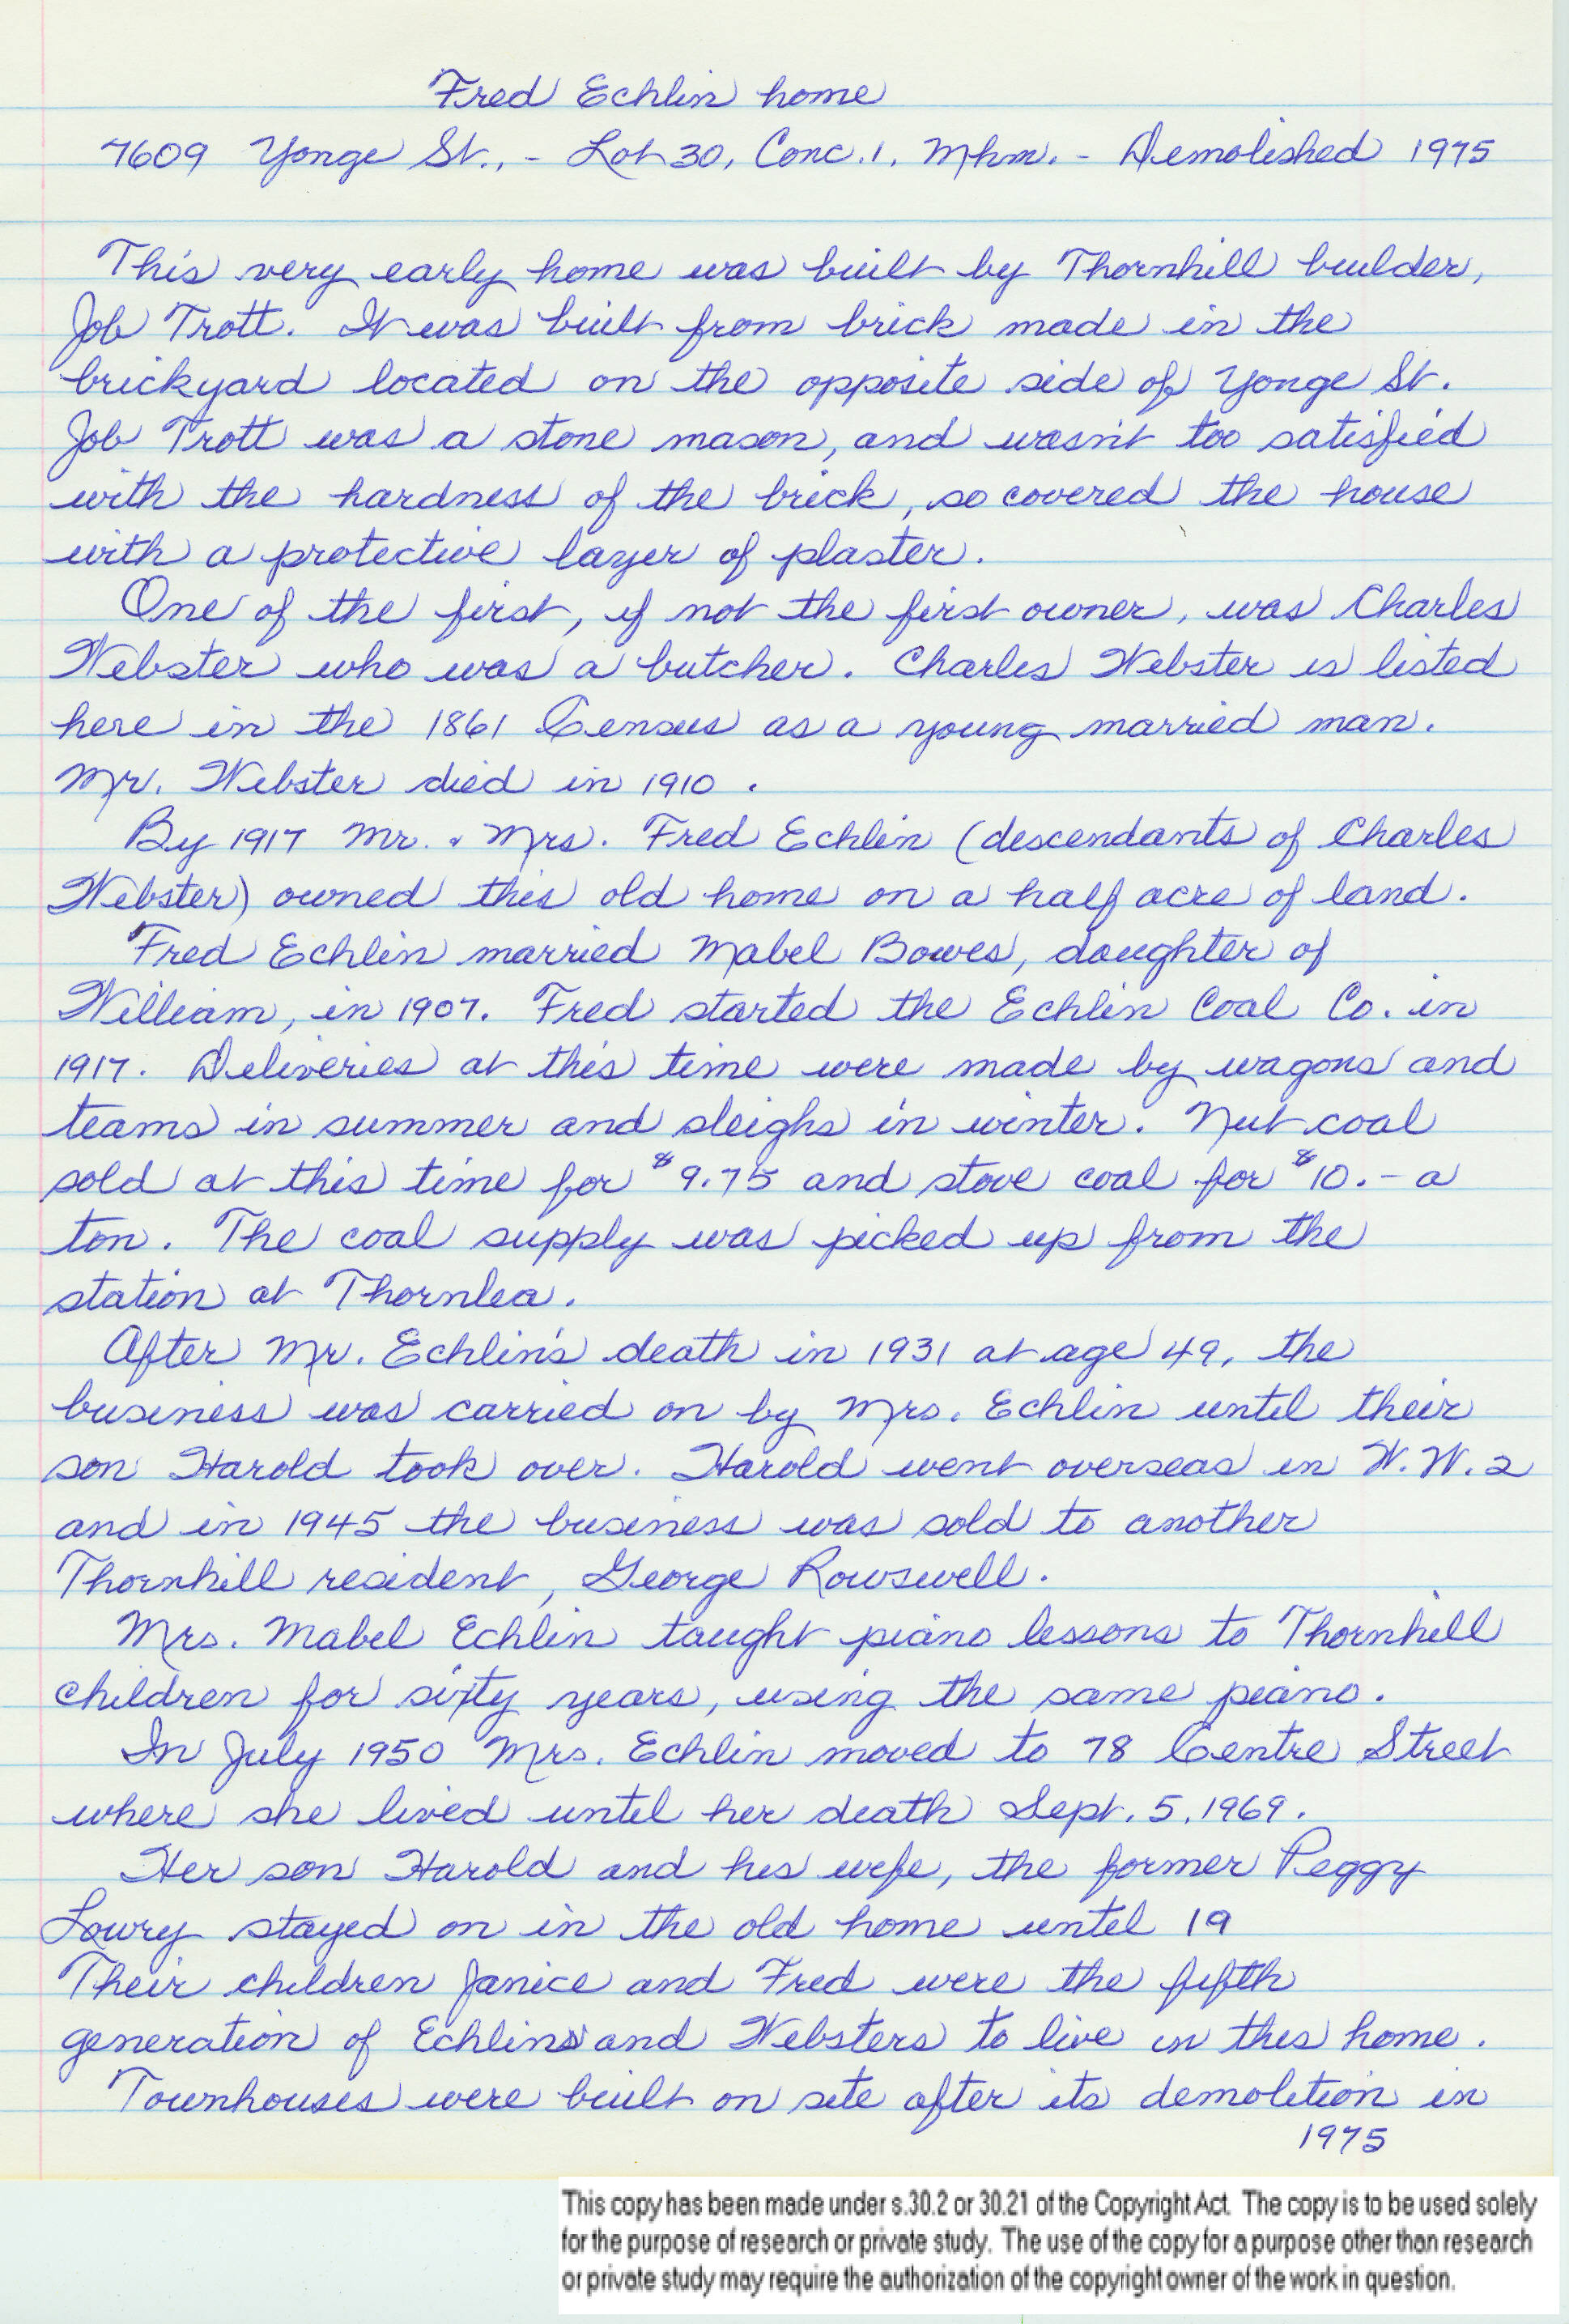 Fred Echlin home
7609 Yonge St., - Lot 30, Conc. 1, Mkm. - Demolished 1975
This very early home was built by Thornhill builder,
Job Trott. It was built from brick made in the
brickyard located on the opposite side of Yonge St.
Job Trott was a stone mason, and wasn't too satisfied
with the hardness of the brick, so covered the house
with a protective layer of plaster.
One of the first, if not the first owner, was Charles
Webster who was a butcher. Charles Webster is listed
here in the 1861 Census as a young married man.
Mr. Webster died in 1910.
By 1917 Mr. & Mrs. Fred Echlin (descendants of Charles
Webster) owned this old home on a half acre of land.
Fred Echlin married Mabel Bowes, daughter of
William, in 1907. Fred started the Echlin Coal Co. in
1917. Deliveries at this time were made by wagons and
teams in summer and sleighs in winter. Nut coal
sold at this time for $9.75 and stove coal for $10.- a
ton. The coal supply was picked up from the
station at Thornlea.
After Mr. Echlin's death in 1931 at age 49, the
business was carried on by Mrs. Echlin until their
son Harold took over. Harold went overseas in W.W.2
and in 1945 the business was sold to another
Thornhill resident, George Rowswell.
Mrs. Mabel Echlin taught piano lessons to Thornhill
children for sixty years, using the same piano.
In July 1950 Mrs. Echlin moved to 78 Centre Street
where she lived until her death Sept. 5, 1969.
Her son Harold and his wife, the former Peggy
Lowry stayed on in the old home until 19
Their children Janice and Fred were the fifth
generation of Echlins and Websters to live in this home.
Townhouses were built on site after its demolition in
1975
This copy has been made under s.30.2 or 30.21 of the Copyright Act. The copy is to be used solely
for the purpose of research or private study. The use of the copy for a purpose other than research
or private study may require the authorization of the copyright owner of the work in question.